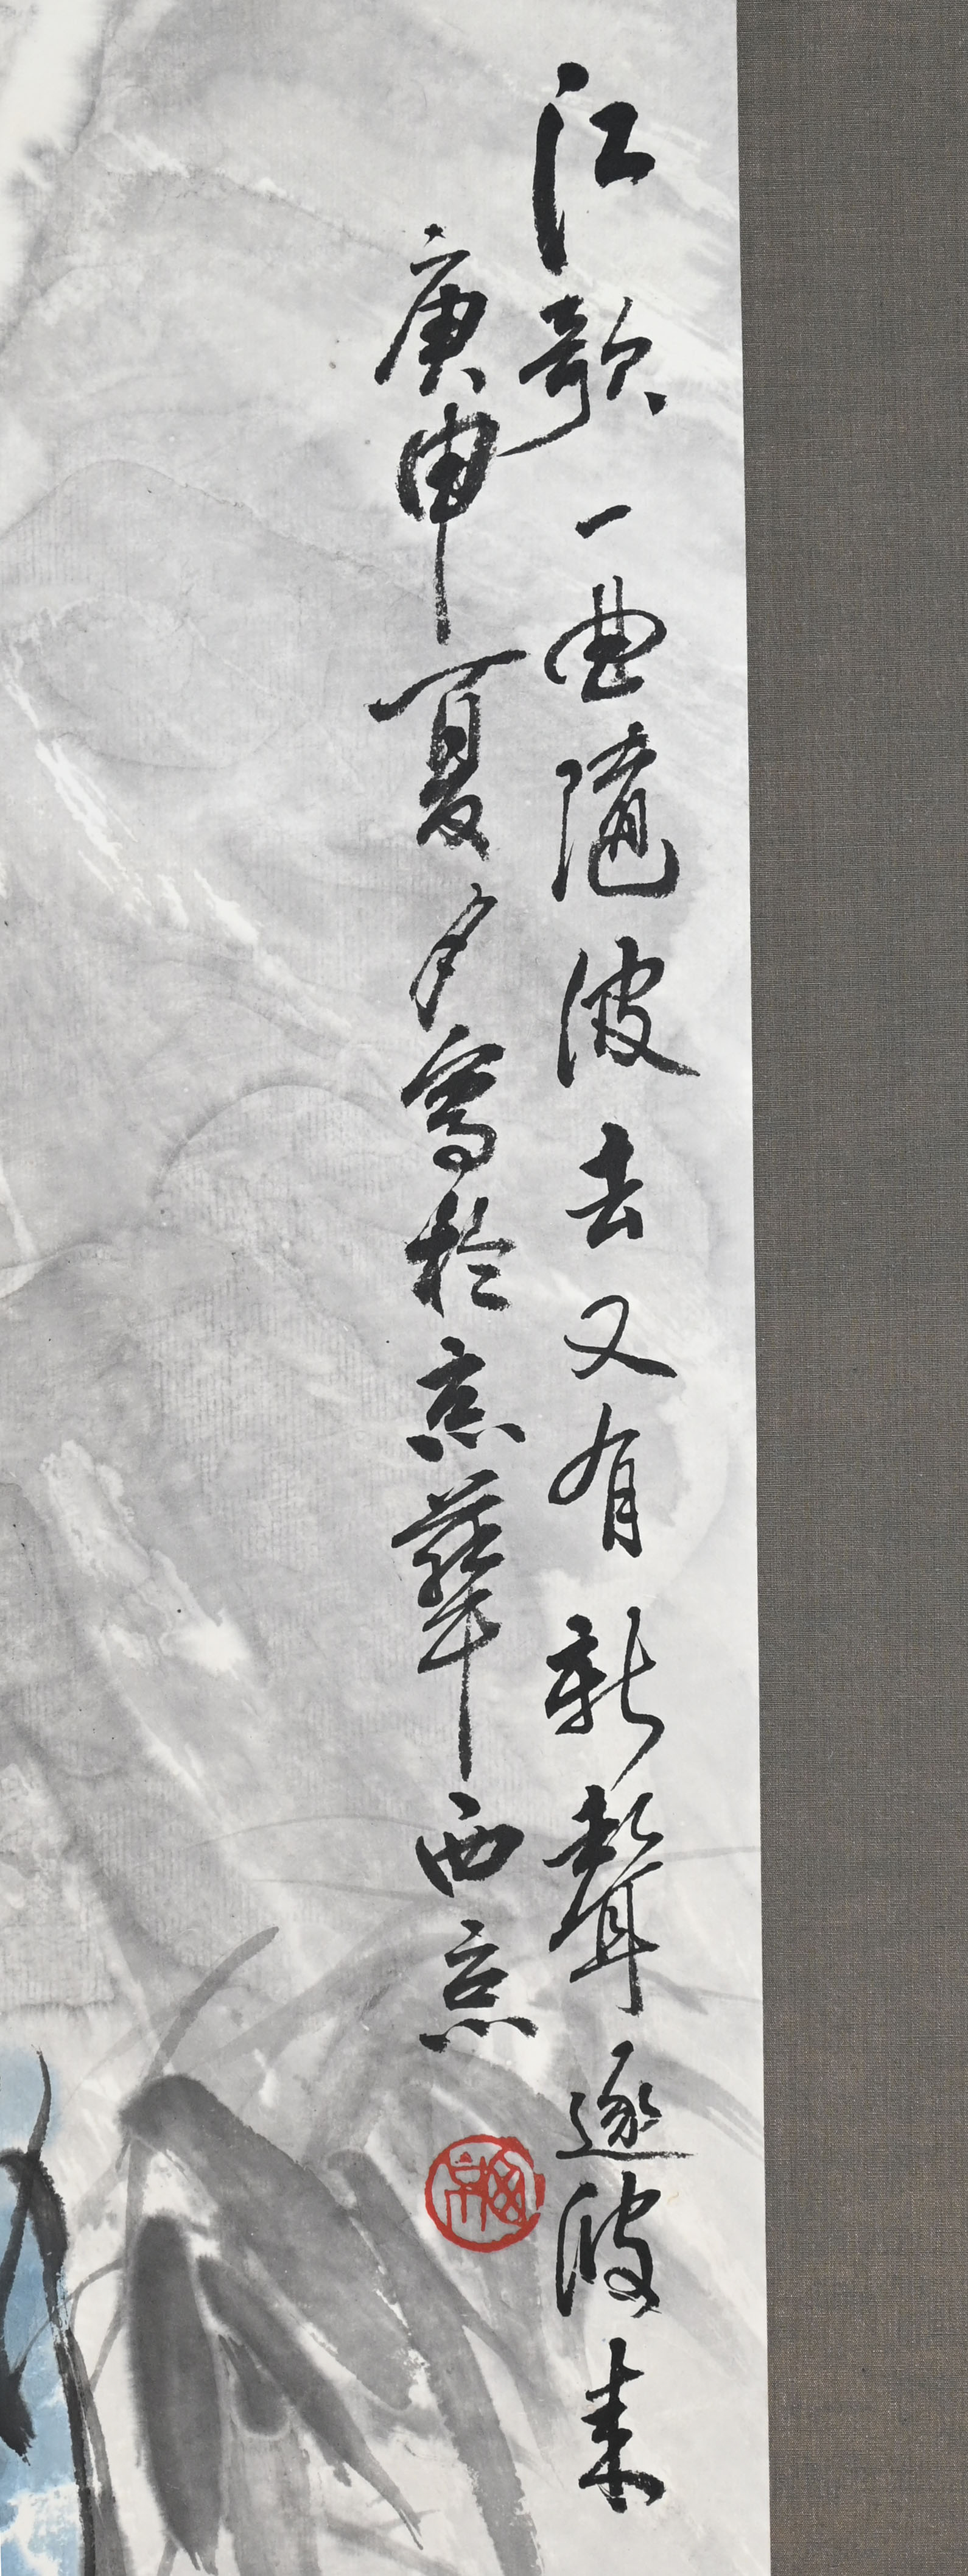 江歌一曲隨波去又有新聲逐波来
庚申夏夕寫於京華西京